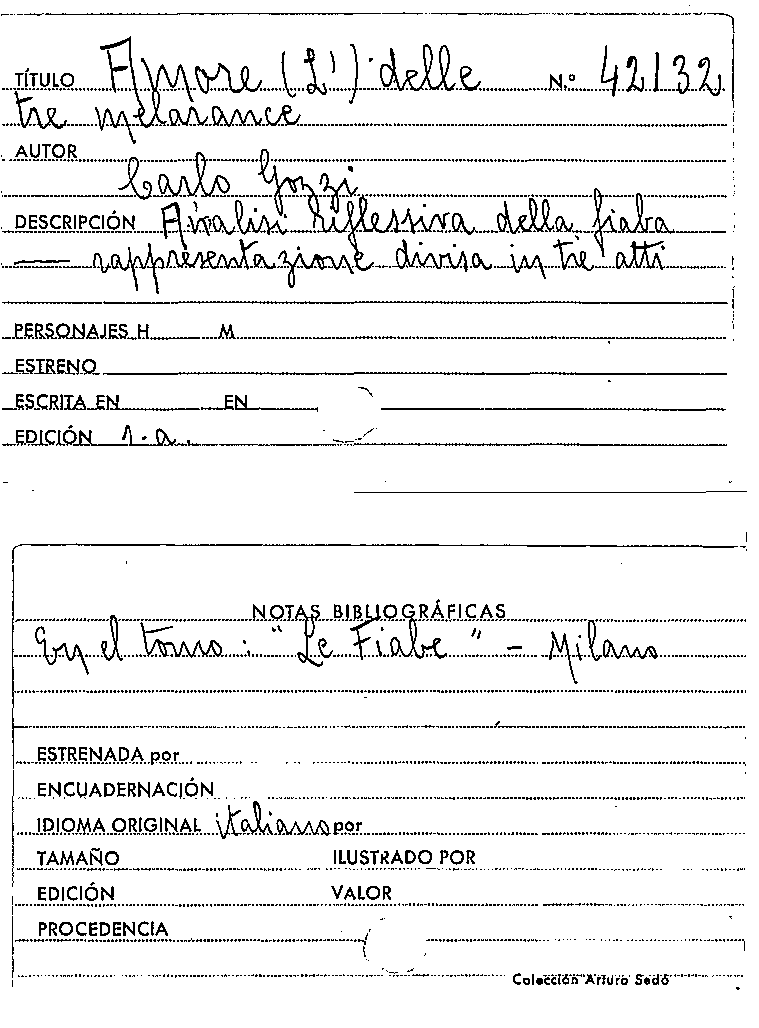 TÍTULO Amore (L') delle N.° 42132
tre melarance
AUTOR
Carlo Gozzi
DESCRIPCIÓN Analisi riflessiva della fiaba
— rappresentazione divisa in tre atti
PERSONAJES H M
ESTRENO
ESCRITA EN EN
EDICIÓN s.a.
NOTAS BIBLIOGRÁFICAS
En el tomo: "Le Fiabe" - Milano
ESTRENADA por
ENCUADERNACIÓN
IDIOMA ORIGINAL italiano por
TAMAÑO ILUSTRADO POR
EDICIÓN VALOR
PROCEDENCIA
Colección Arturo Sedó